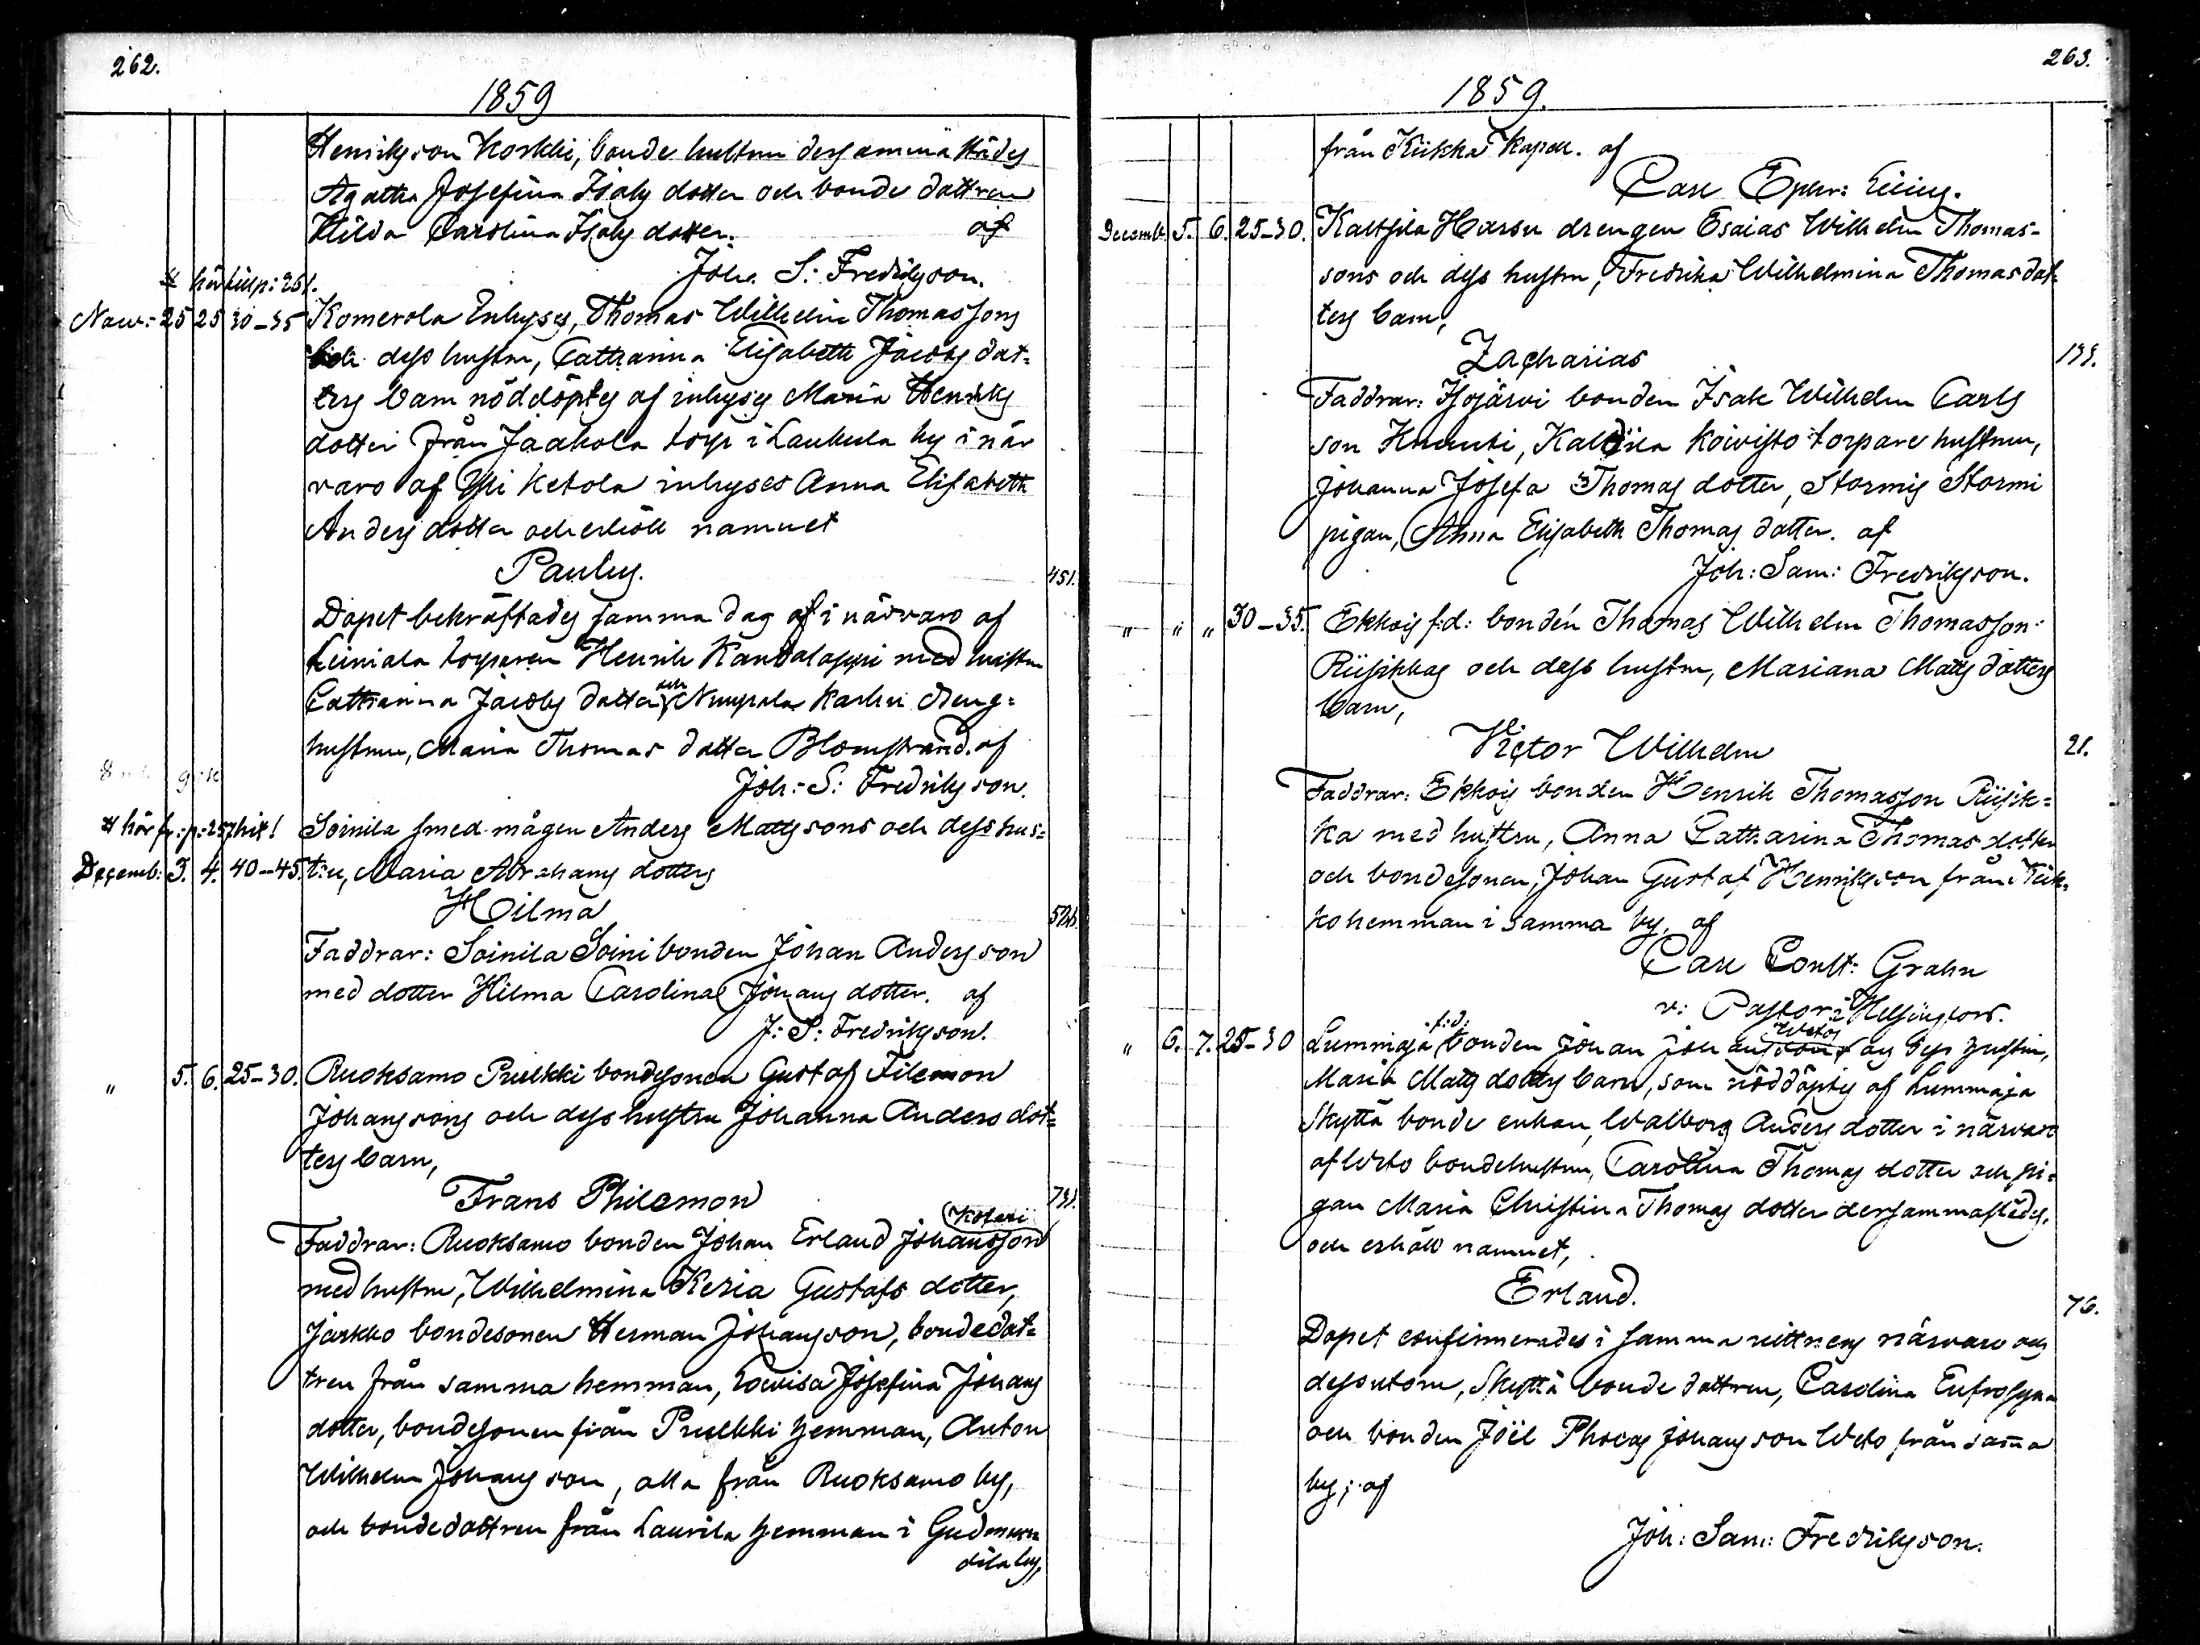 262.
1859
Henriksson Korkki, bonde hustrun dersamma städes
Agatha Josefina Isaks dotter och bonde dottren
Hilda Carolina Isaks dotter. af
Joh. S: Fredriksson.
# hör till p: 251.
Nov:- 25 25 30-35 Komerola Inhyses, Thomas Wilhelm Thomassons
och dess hustru, Catharina Elisabeth Jacobs dot-
ters barn nöddöptes af inhyses Maria Henriks
dotter från Jaakola torp i Laukula by i när
varo af Yli Ketola inhyses Anna Elisabeth
Anders dotter och erhöll namnet
Paulus. 451.
Dopet bekräftades samma dag af i närvaro af
Leiniala torparen Henrik Kandolappi med hustru
Catharina Jacobs dotter och Nuupala Karhu dreng-
hustrun, Maria Thomas dotter Blomstrand. af
Joh:- S: Fredriksson.
# hör fr: p: 257 hit! Soinila smed-mågen Anders Mattssons och dess hus-
Decemb: 3. 4. 40-45. tru, Maria Abrahams dotters
Hilma
Faddrar: Soinila Soini bonden Johan Andersson
med dotter Hilma Carolina Johans dotter. af
J: S: Fredriksson.
" 5. 6. 25-30. Ruoksamo Prelkki bondesonen Gustaf Filemon
Johanssons och dess hustru Johanna Anders dot-
ters barn,
Frans Philemon
Koferi
Faddrar: Ruoksamo bonden Johan Erland Johansson
med hustru, Wilhelmina Keria Gustafs dotter,
Jarkko bondesonen Herman Johansson, bondedot-
tren från samma hemman, Lovisa Josefina Johans
dotter, bondesonen från Prelkki hemman, Anton
Wilhelm Johansson, alla från Ruoksamo by,
och bondedottren från Laurila hemman i Gudmun
dila by,
263.
1859.
från Kiikka Kapell. af
Carl Ephr:
Decemb. 5. 6. 25-30. Kaltsila Harsu drengen Esaias Wilhelm Thomas-
sons och dess hustru, Fredrika Wilhelmina Thomas dot-
ters barn,
Zacharias 199.
Faddrar: Isojärvi bonden Isak Wilhelm Carls
son Knuuti, Kaltsila Koivisto torpare hustrun,
Johanna Josefa Thomas dotter, Stormis Stormi
pigan, Anna Elisabeth Thomas dotter. af
Joh: Sam: Fredriksson.
" " " 30-35. Ekkois f.d: bonden Thomas Wilhelm Thomasson-
Riisikkas och dess hustru, Mariana Matts dotters
barn,
Victor Wilhelm 21.
Faddrar: Ekkois bonden Henrik Thomasson Riisik-
ka med hustru, Anna Catharina Thomas dotter
och bondesonen, Johan Gustaf Henriksson från Kiik-
ko hemman i samma by, af
Carl Const: Grahn
v: Pastor i Helsingfors.
" 6. 7. 25-30 Lummaja f:d: bonden Johan Johansson Wetos och dess hustru,
Maria Matts dotters barn, som nöddöptes af Lummaja
Skyttä bonde enkan, Walborg Anders dotter i närvaro
af Weto bondehustrun, Carolina Thomas dotter och pi-
gan Maria Christina Thomas dotter dersammastädes,
och erhöll namnet,
Erland. 76.
Dopet confirmerades i samma vittnens närvaro och
dessutom, Skyttä bonde dottren, Carolina Eufrosyna
och bonden Joël Phocas Johansson Weto från samma
by; af
Joh: Sam: Fredriksson.